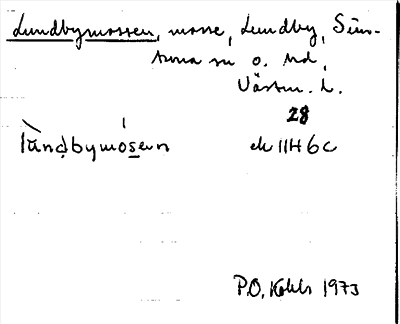 Lundbymossen, mosse, Lundby, Sim-
tuna sn o. hd,
Västm. l.
28
lùnḍbymósen ek 11H 6c
P.O. 1973